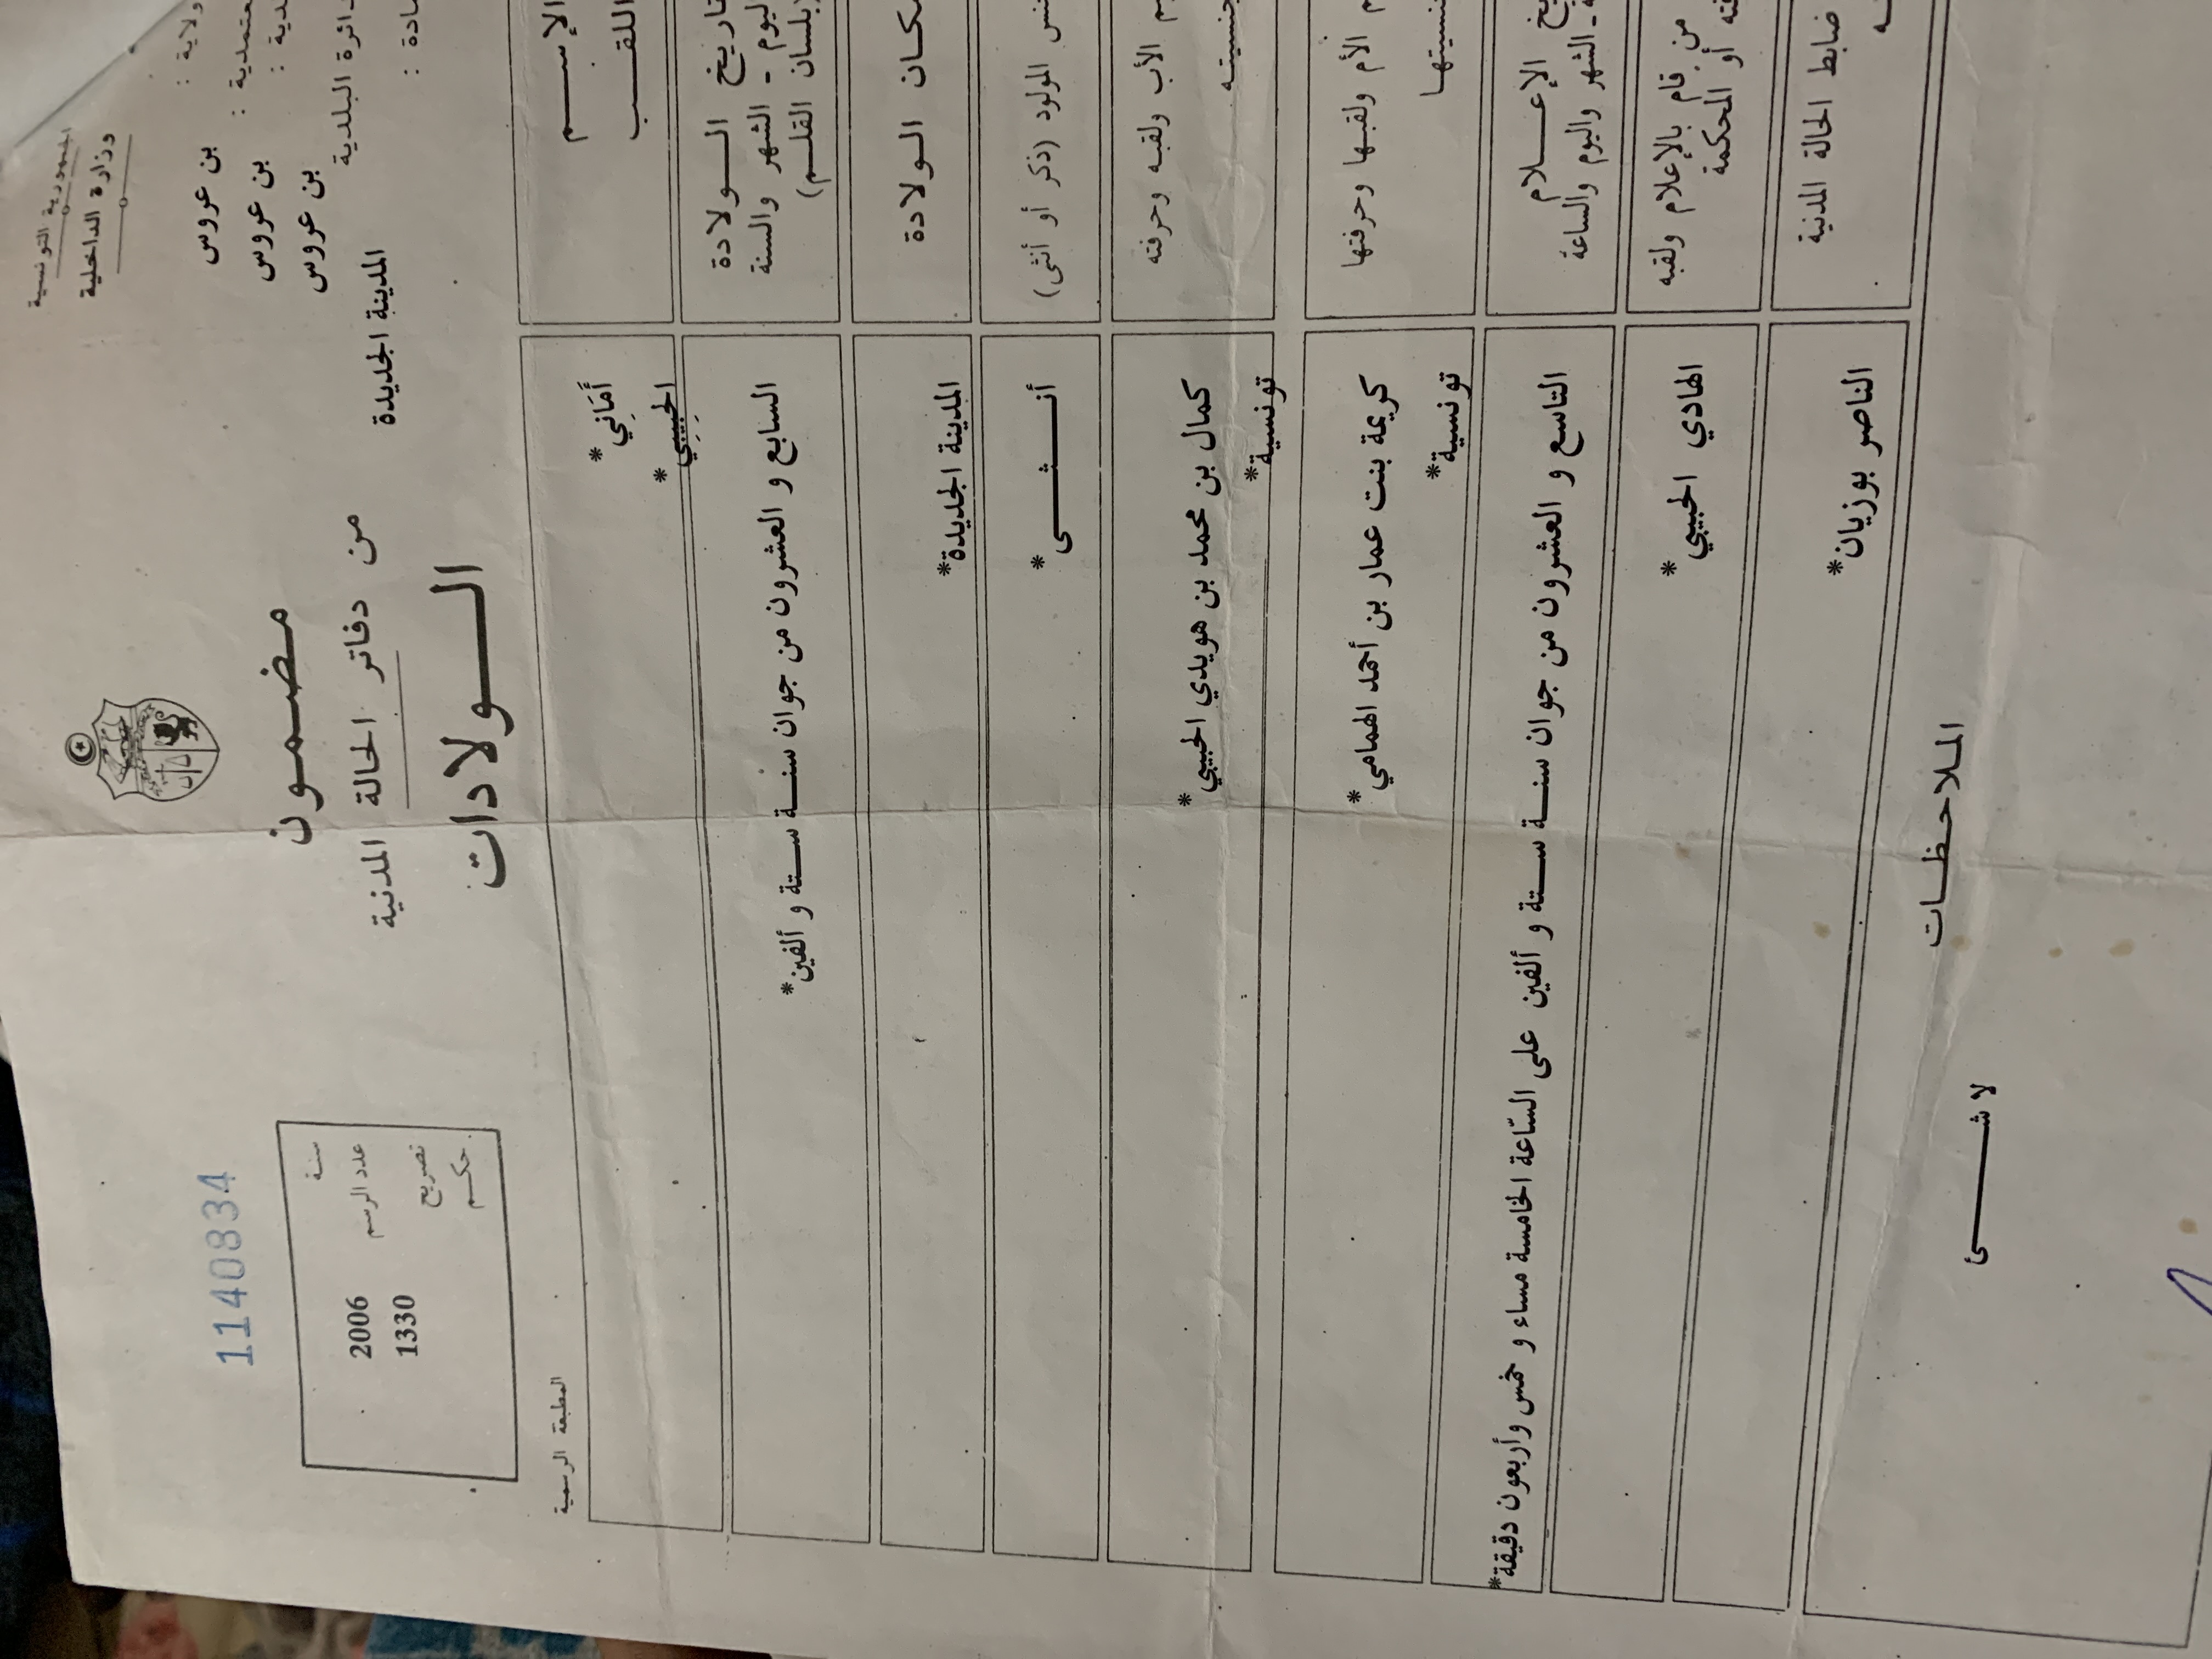 الجمهورية التونسية
وزارة الداخلية
ولاية : بن عروس
بن عروس
: بن عروس
دائرة البلدية
: المدينة الجديدة
11140834
سنة 2006
عدد الرسم 1330
تصريح
حكم
المطبعة الرسمية
مضمون
من دفاتر الحالة المدنية
الولادات
الإسم أَمَانِي*
اللقب الحِبِيبِي*
تاريخ الولادة
اليوم - الشهر والسنة
(بلسان القلم)
السابع و العشرون من جوان سنة ستة و ألفين*
مكان الولادة
المدينة الجديدة*
جنس المولود (ذكر أو أنثى)
أنثى*
الأب ولقبه وحرفته
جنسيته
كمال بن محمد بن هويدي الحبيبي*
تونسية*
الأم ولقبها وحرفتها
جنسيتها
كريمة بنت عمار بن أحمد الهمامي*
تونسية*
الإعلام
الشهر واليوم والساعة
التاسع و العشرون من جوان سنة ستة و ألفين على السّاعة الخامسة مساء و خمس وأربعون دقيقة*
من قام بالإعلام ولقبه
أو المحكمة
الهادي الحبيبي*
ضابط الحالة المدنية
الناصر بوزيان*
الملاحظات
لا شئ